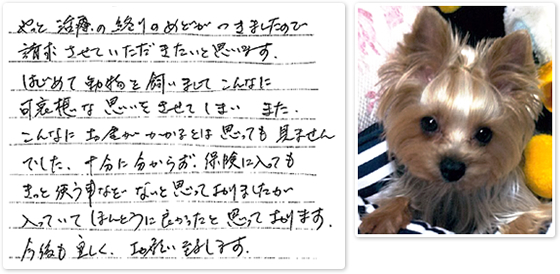 やっと治療の終りのめどがつきましたので
請求させていただきたいと思います。
はじめて動物を飼いましてこんなに
可哀想な思いをさせてしまい また、
こんなにお金がかかるとは思っても見ません
でした。十分に分からず、保険に入っても
きっと使う事などないと思っておりましたが
入っていてほんとうに良かったと思っております。
今後も宜しく、お願い致します。